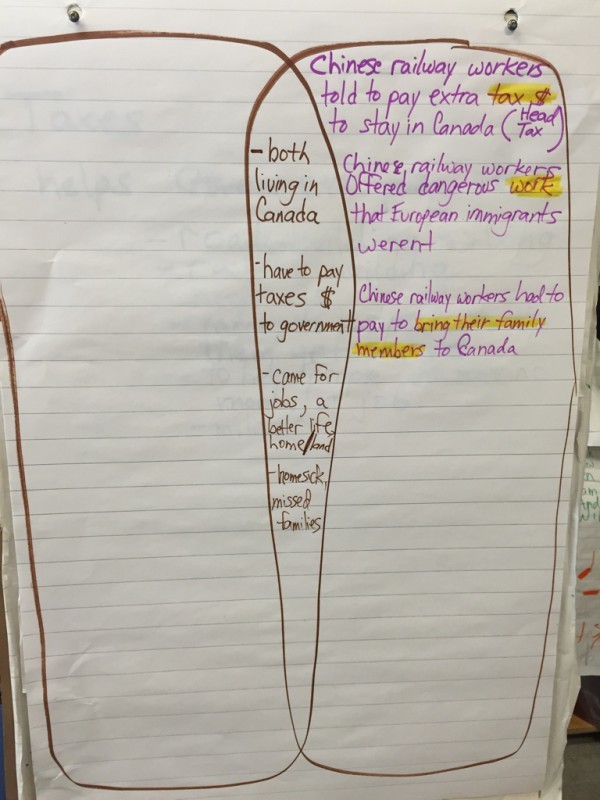 Chinese railway workers
told to pay extra tax $
to stay in Canada (Head
Tax)
Chinese railway workers
Offered dangerous work
that European immigrants
werent
Chinese railway workers had to
pay to bring their family
members to Canada
- both
living in
Canada
- have to pay
taxes $
to government
- came for
jobs, a
better life,
home/land
- homesick,
missed
families